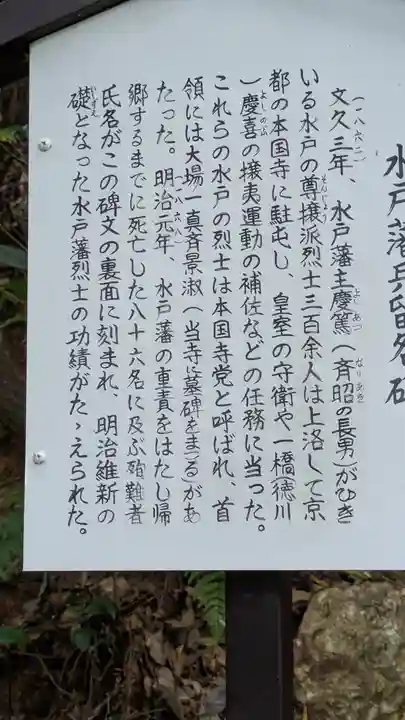 水戸藩兵留名碑
文久三年、水戸藩主慶篤（斉昭の長男）がひき
（一八六三）
よしあつ
なりあき
いる水戸の尊攘派烈士三百余人は上洛して京
そんじょう
都の本国寺に駐屯し、皇室の守衛や一橋（徳川
）慶喜の攘夷運動の補佐などの任務に当った。
よしのぶ
これらの水戸の烈士は本国寺党と呼ばれ、首
領には大場一真斉景淑（当寺に墓碑をまつる）があ
たった。明治元年、水戸藩の重責をはたし帰
（一八六八）
郷するまでに死亡した八十六名に及ぶ殉難者
氏名がこの碑文の裏面に刻まれ、明治維新の
礎となった水戸藩烈士の功績がたゝえられた。
いしずえ